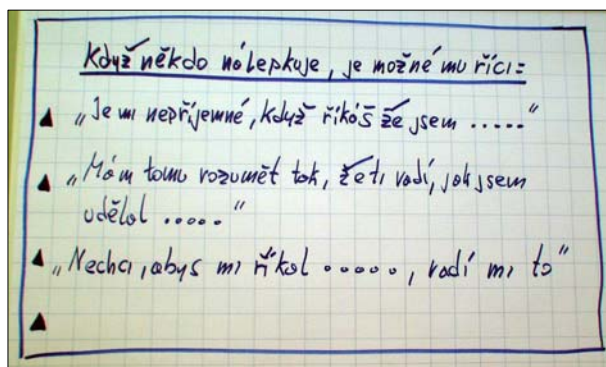 Když někdo nálepkuje, je možné mu říci:
▲ „Je mi nepříjemné, když říkáš že jsem ....."
▲ „Mám tomu rozumět tak, že ti vadí, jak jsem
udělal ....."
▲ „Nechci, abys mi říkal ....., vadí mi to"
▲